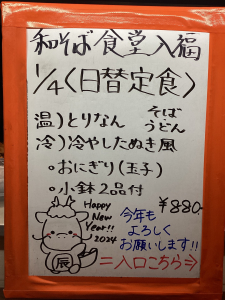 和そば食堂入福
1/4〈日替定食〉
温)とりなん そば
冷)冷やしたぬき風 うどん
・おにぎり(玉子)
・小鉢2品付
¥880-
Happy
New
Year!!
2024
今年も
よろしく
お願いします!!
辰
=入口こちら⇒